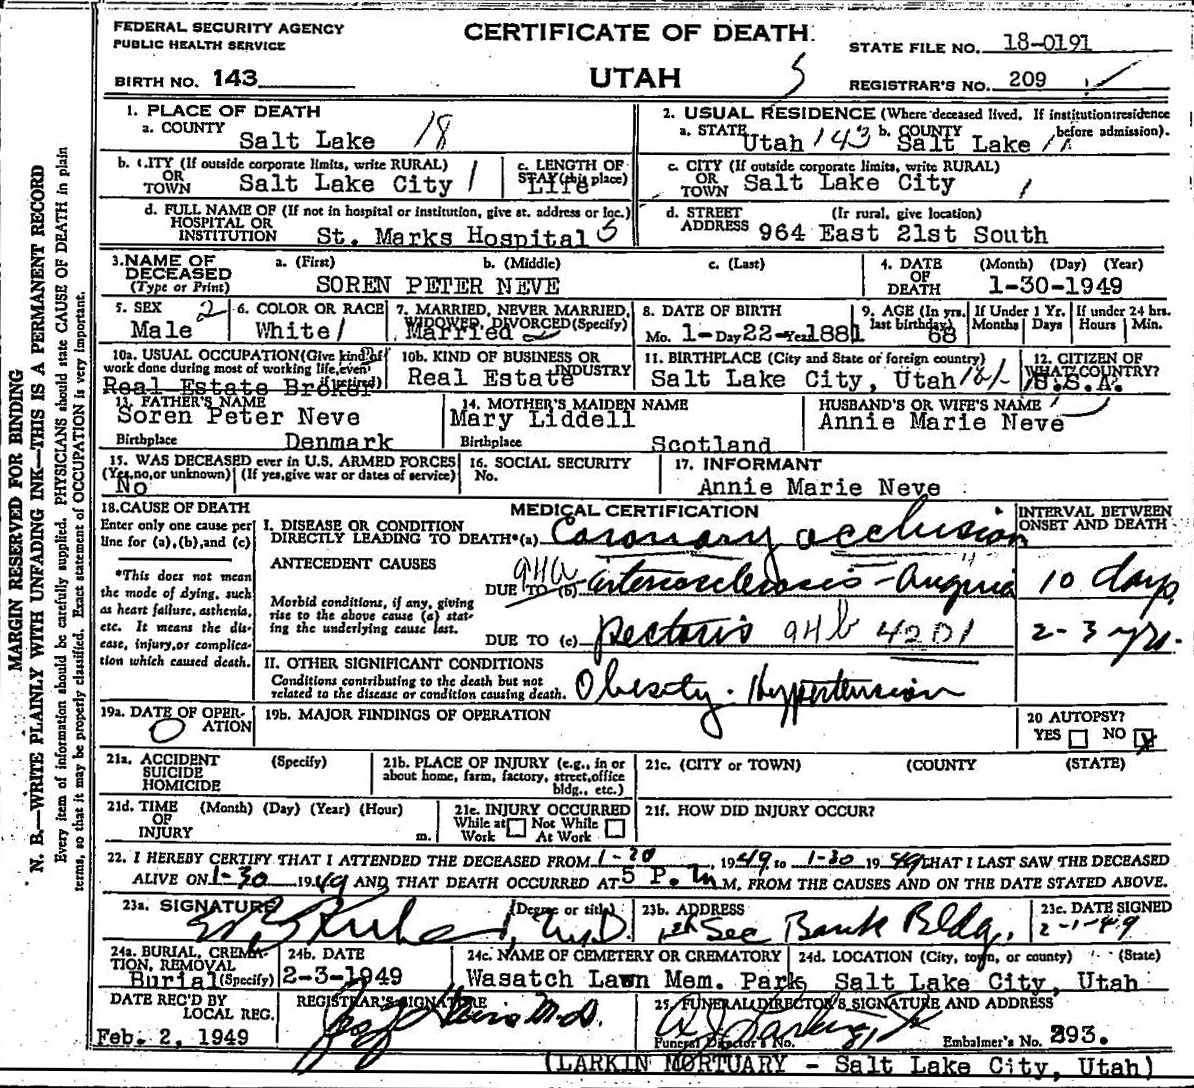 FEDERAL SECURITY AGENCY
PUBLIC HEALTH SERVICE
BIRTH NO. 143
CERTIFICATE OF DEATH
UTAH
STATE FILE NO. 18-0191
REGISTRAR'S NO. 209
MARGIN RESERVED FOR BINDING
N. B.—WRITE PLAINLY WITH UNFADING INK—THIS IS A PERMANENT RECORD
Every item of information should be carefully supplied. PHYSICIANS should state CAUSE OF DEATH in plain
terms, so that it may be properly classified. Exact statement of OCCUPATION is very important.
1. PLACE OF DEATH
a. COUNTY
Salt Lake 18
2. USUAL RESIDENCE (Where deceased lived. If institution:residence
before admission).
a. STATE Utah 143 b. COUNTY Salt Lake
b. CITY (If outside corporate limits, write RURAL)
OR
TOWN Salt Lake City 1
c. LENGTH OF
STAY (this place)
Life
c. CITY (If outside corporate limits, write RURAL)
OR
TOWN Salt Lake City 1
d. FULL NAME OF (If not in hospital or institution, give st. address or loc.)
HOSPITAL OR
INSTITUTION St. Marks Hospital 5
d. STREET (If rural, give location)
ADDRESS 964 East 21st South
3. NAME OF
DECEASED
(Type or Print)
a. (First) b. (Middle) c. (Last)
SOREN PETER NEVE
4. DATE
OF
DEATH
(Month) (Day) (Year)
1-30-1949
5. SEX 2
Male
6. COLOR OR RACE
White 1
7. MARRIED, NEVER MARRIED,
WIDOWED, DIVORCED (Specify)
Married 2
8. DATE OF BIRTH
Mo. 1-Day 22-Year 1881
9. AGE (In yrs.
last birthday)
68
If Under 1 Yr.
Months Days
If under 24 hrs.
Hours Min.
10a. USUAL OCCUPATION (Give kind of
work done during most of working life, even
if retired)
Real Estate Broker
10b. KIND OF BUSINESS OR
INDUSTRY
Real Estate
11. BIRTHPLACE (City and State or foreign country)
Salt Lake City, Utah
12. CITIZEN OF
WHAT COUNTRY?
U.S.A.
13. FATHER'S NAME
Soren Peter Neve
Birthplace Denmark
14. MOTHER'S MAIDEN NAME
Mary Liddell
Birthplace Scotland
HUSBAND'S OR WIFE'S NAME
Annie Marie Neve
15. WAS DECEASED ever in U.S. ARMED FORCES
(Yes, no, or unknown) (If yes, give war or dates of service)
No
16. SOCIAL SECURITY
No.
17. INFORMANT
Annie Marie Neve
18. CAUSE OF DEATH
Enter only one cause per
line for (a), (b), and (c)
*This does not mean
the mode of dying, such
as heart failure, asthenia,
etc. It means the dis-
ease, injury, or complica-
tion which caused death.
MEDICAL CERTIFICATION
INTERVAL BETWEEN
ONSET AND DEATH
I. DISEASE OR CONDITION
DIRECTLY LEADING TO DEATH*(a) Coronary occlusion
ANTECEDENT CAUSES
Morbid conditions, if any, giving
rise to the above cause (a) stat-
ing the underlying cause last.
94a
DUE TO (b) arteriosclerosis - Angina 10 days
DUE TO (c) pectoris 94b 4201 2-3 yrs.
II. OTHER SIGNIFICANT CONDITIONS
Conditions contributing to the death but not
related to the disease or condition causing death.
Obesity. Hypertension
19a. DATE OF OPER-
ATION
0
19b. MAJOR FINDINGS OF OPERATION
20 AUTOPSY?
YES NO
21a. ACCIDENT
SUICIDE
HOMICIDE
(Specify)
21b. PLACE OF INJURY (e.g., in or
about home, farm, factory, street, office
bldg., etc.)
21c. (CITY or TOWN) (COUNTY) (STATE)
21d. TIME
OF
INJURY
(Month) (Day) (Year) (Hour)
m.
21e. INJURY OCCURRED
While at Work Not While At Work
21f. HOW DID INJURY OCCUR?
22. I HEREBY CERTIFY THAT I ATTENDED THE DECEASED FROM 1-20, 1949 to 1-30 1949 THAT I LAST SAW THE DECEASED
ALIVE ON 1-30 1949 AND THAT DEATH OCCURRED AT 5 P. M. M. FROM THE CAUSES AND ON THE DATE STATED ABOVE.
23a. SIGNATURE (Degree or title)
M.D.
23b. ADDRESS
1st Sec Bank Bldg.
23c. DATE SIGNED
2-1-49
24a. BURIAL, CREMA-
TION, REMOVAL
Burial (Specify)
24b. DATE
2-3-1949
24c. NAME OF CEMETERY OR CREMATORY
Wasatch Lawn Mem. Park
24d. LOCATION (City, town, or county) (State)
Salt Lake City, Utah
DATE REC'D BY
LOCAL REG.
Feb. 2, 1949
REGISTRAR'S SIGNATURE
M.D.
25. FUNERAL DIRECTOR'S SIGNATURE AND ADDRESS
Funeral Director's No. 81 Embalmer's No. 293.
(LARKIN MORTUARY - Salt Lake City, Utah)